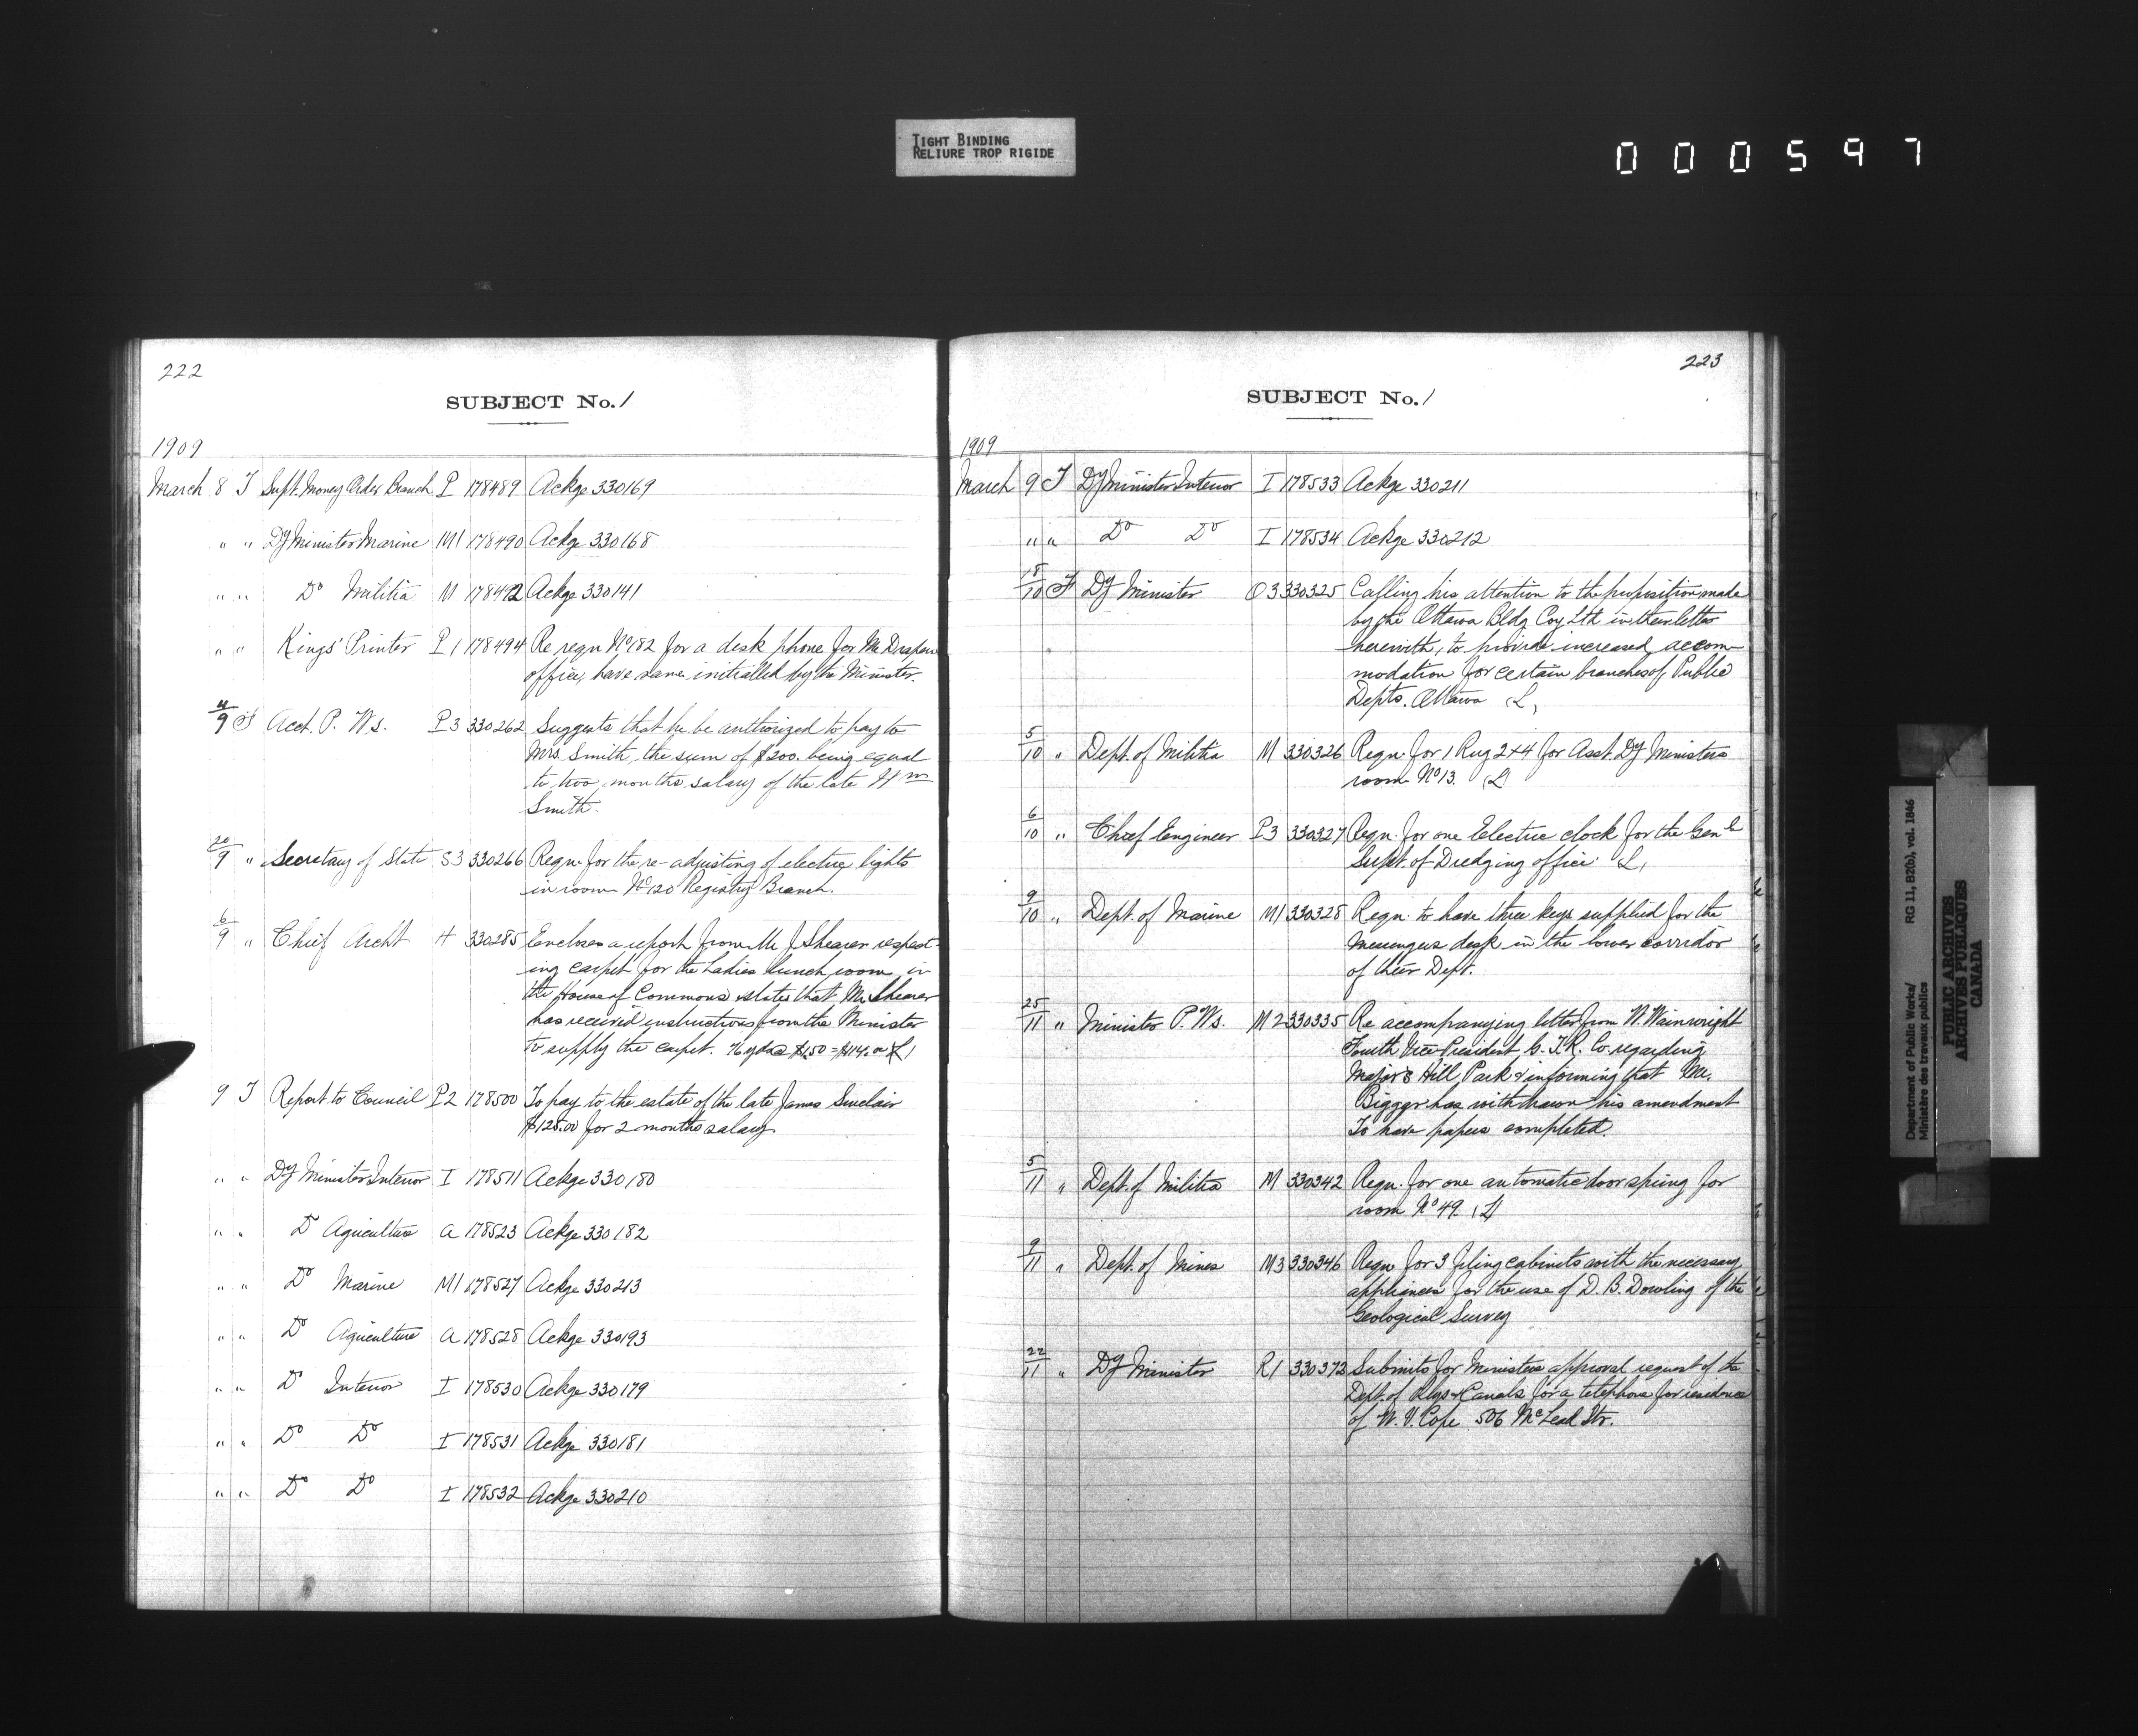 TIGHT BINDING
RELIURE TROP RIGIDE
000597
222
SUBJECT No. 1
1909
March 8 T Supt. Money Order Branch P 178489 Ackge 330169
" " Dy Minister Marine M1 178490 Ackge 330168
" " Do Militia M 178492 Ackge 330141
" " Kings' Printer P1 178494 Re reqn No 182 for a desk phone for Mr Drapeau
office, have same initialled by the Minister.
4/9 F Acct. P. Ws. P3 330262 Suggests that he be authorized to pay to
Mrs. Smith, the sum of $200. being equal
to two months salary of the late Wm
Smith.
20/9 " Secretary of State S3 330266 Reqn. for the re-adjusting of electric lights
in room No 120 Registry Branch.
6/9 " Chief Archt A 330285 Encloses a report from Mr J. Shearer respect-
ing carpet for the Ladies lunch room in
the House of Commons & states that Mr. Shearer
has received instructions from the Minister
to supply the carpet. 76 yds @ $1.50 = $114.00 (L)
9 T Report to Council P2 178500 To pay to the estate of the late James Sinclair
$125.00 for 2 months salary
" " Dy Minister Interior I 178511 Ackge 330180
" " Do Agriculture A 178523 Ackge 330182
" " Do Marine M1 178527 Ackge 330213
" " Do Agriculture A 178528 Ackge 330193
" " Do Interior I 178530 Ackge 330179
" " Do Do I 178531 Ackge 330181
" " Do Do I 178532 Ackge 330210
223
SUBJECT No. 1
1909
March 9 T Dy Minister Interior I 178533 Ackge 330211
" " Do Do I 178534 Ackge 330212
18/10 F Dy Minister O3 330325 Calling his attention to the proposition made
by the Ottawa Bldg Coy Ltd in their letter
herewith, to provide increased accom-
modation for certain branches of Public
Depts. Ottawa (L)
5/10 " Dept. of Militia M 330326 Reqn. for 1 Rug 2x4 for Asst. Dy Ministers
room No 13. (L)
6/10 " Chief Engineer P3 330327 Reqn. for one Electric clock for the Genl
Supt. of Dredging office (L)
9/10 " Dept. of Marine M1 330328 Reqn. to have three keys supplied for the
Messengers desk in the lower corridor
of their Dept.
25/11 " Minister P. Ws. M2 330335 Re accompanying letter from W. Wainwright
Fourth Vice President G. T. R. Co. regarding
Major's Hill Park & informing that Mr.
Biggar has withdrawn his amendment
To have papers completed.
5/11 " Dept. of Militia M 330342 Reqn. for one automatic door spring for
room No 49. (L)
9/11 " Dept. of Mines M3 330346 Reqn for 3 filing cabinets with the necessary
appliances for the use of D. B. Dowling of the
Geological Survey
22/11 " Dy Minister R1 330373 Submits for Ministers approval request of the
Dept. of Rlys & Canals for a telephone for residence
of W. V. Cope 506 McLeod Str.
Department of Public Works/ RG 11, B2(b), vol. 1846
Ministère des travaux publics
PUBLIC ARCHIVES
ARCHIVES PUBLIQUES
CANADA